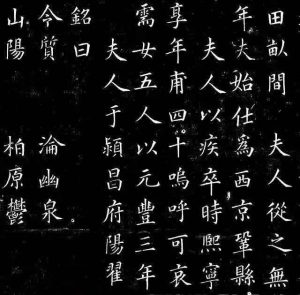 田畝間 夫人從之無
年夫始仕爲西京鞏縣
夫人以疾卒時熙寧
享年甫四十嗚呼可哀
需女五人以元豐三年
夫人于潁昌府陽翟
銘曰
令質 淪幽泉。
山陽 柏原鬱